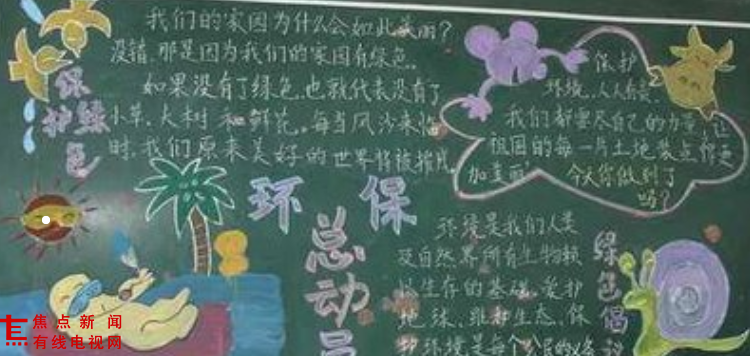 我们的家园为什么会如此美丽?
没错,那是因为我们的家园有绿色。
如果没有了绿色,也就代表没有了
小草、大树和鲜花。每当风沙来临
时,我们原来美好的世界将被摧残
保护绿色
保护
环境,人人有责。
我们都要尽自己的力量,让
祖国的每一片土地装点得更
加美丽!
今天你做到了
吗?
环保
总动员
环境是我们人类
及自然界所有生物赖
以生存的基础。爱护
地球,维护生态,保
护环境是每个公民的义务
绿色倡议
焦点新闻
有线电视网